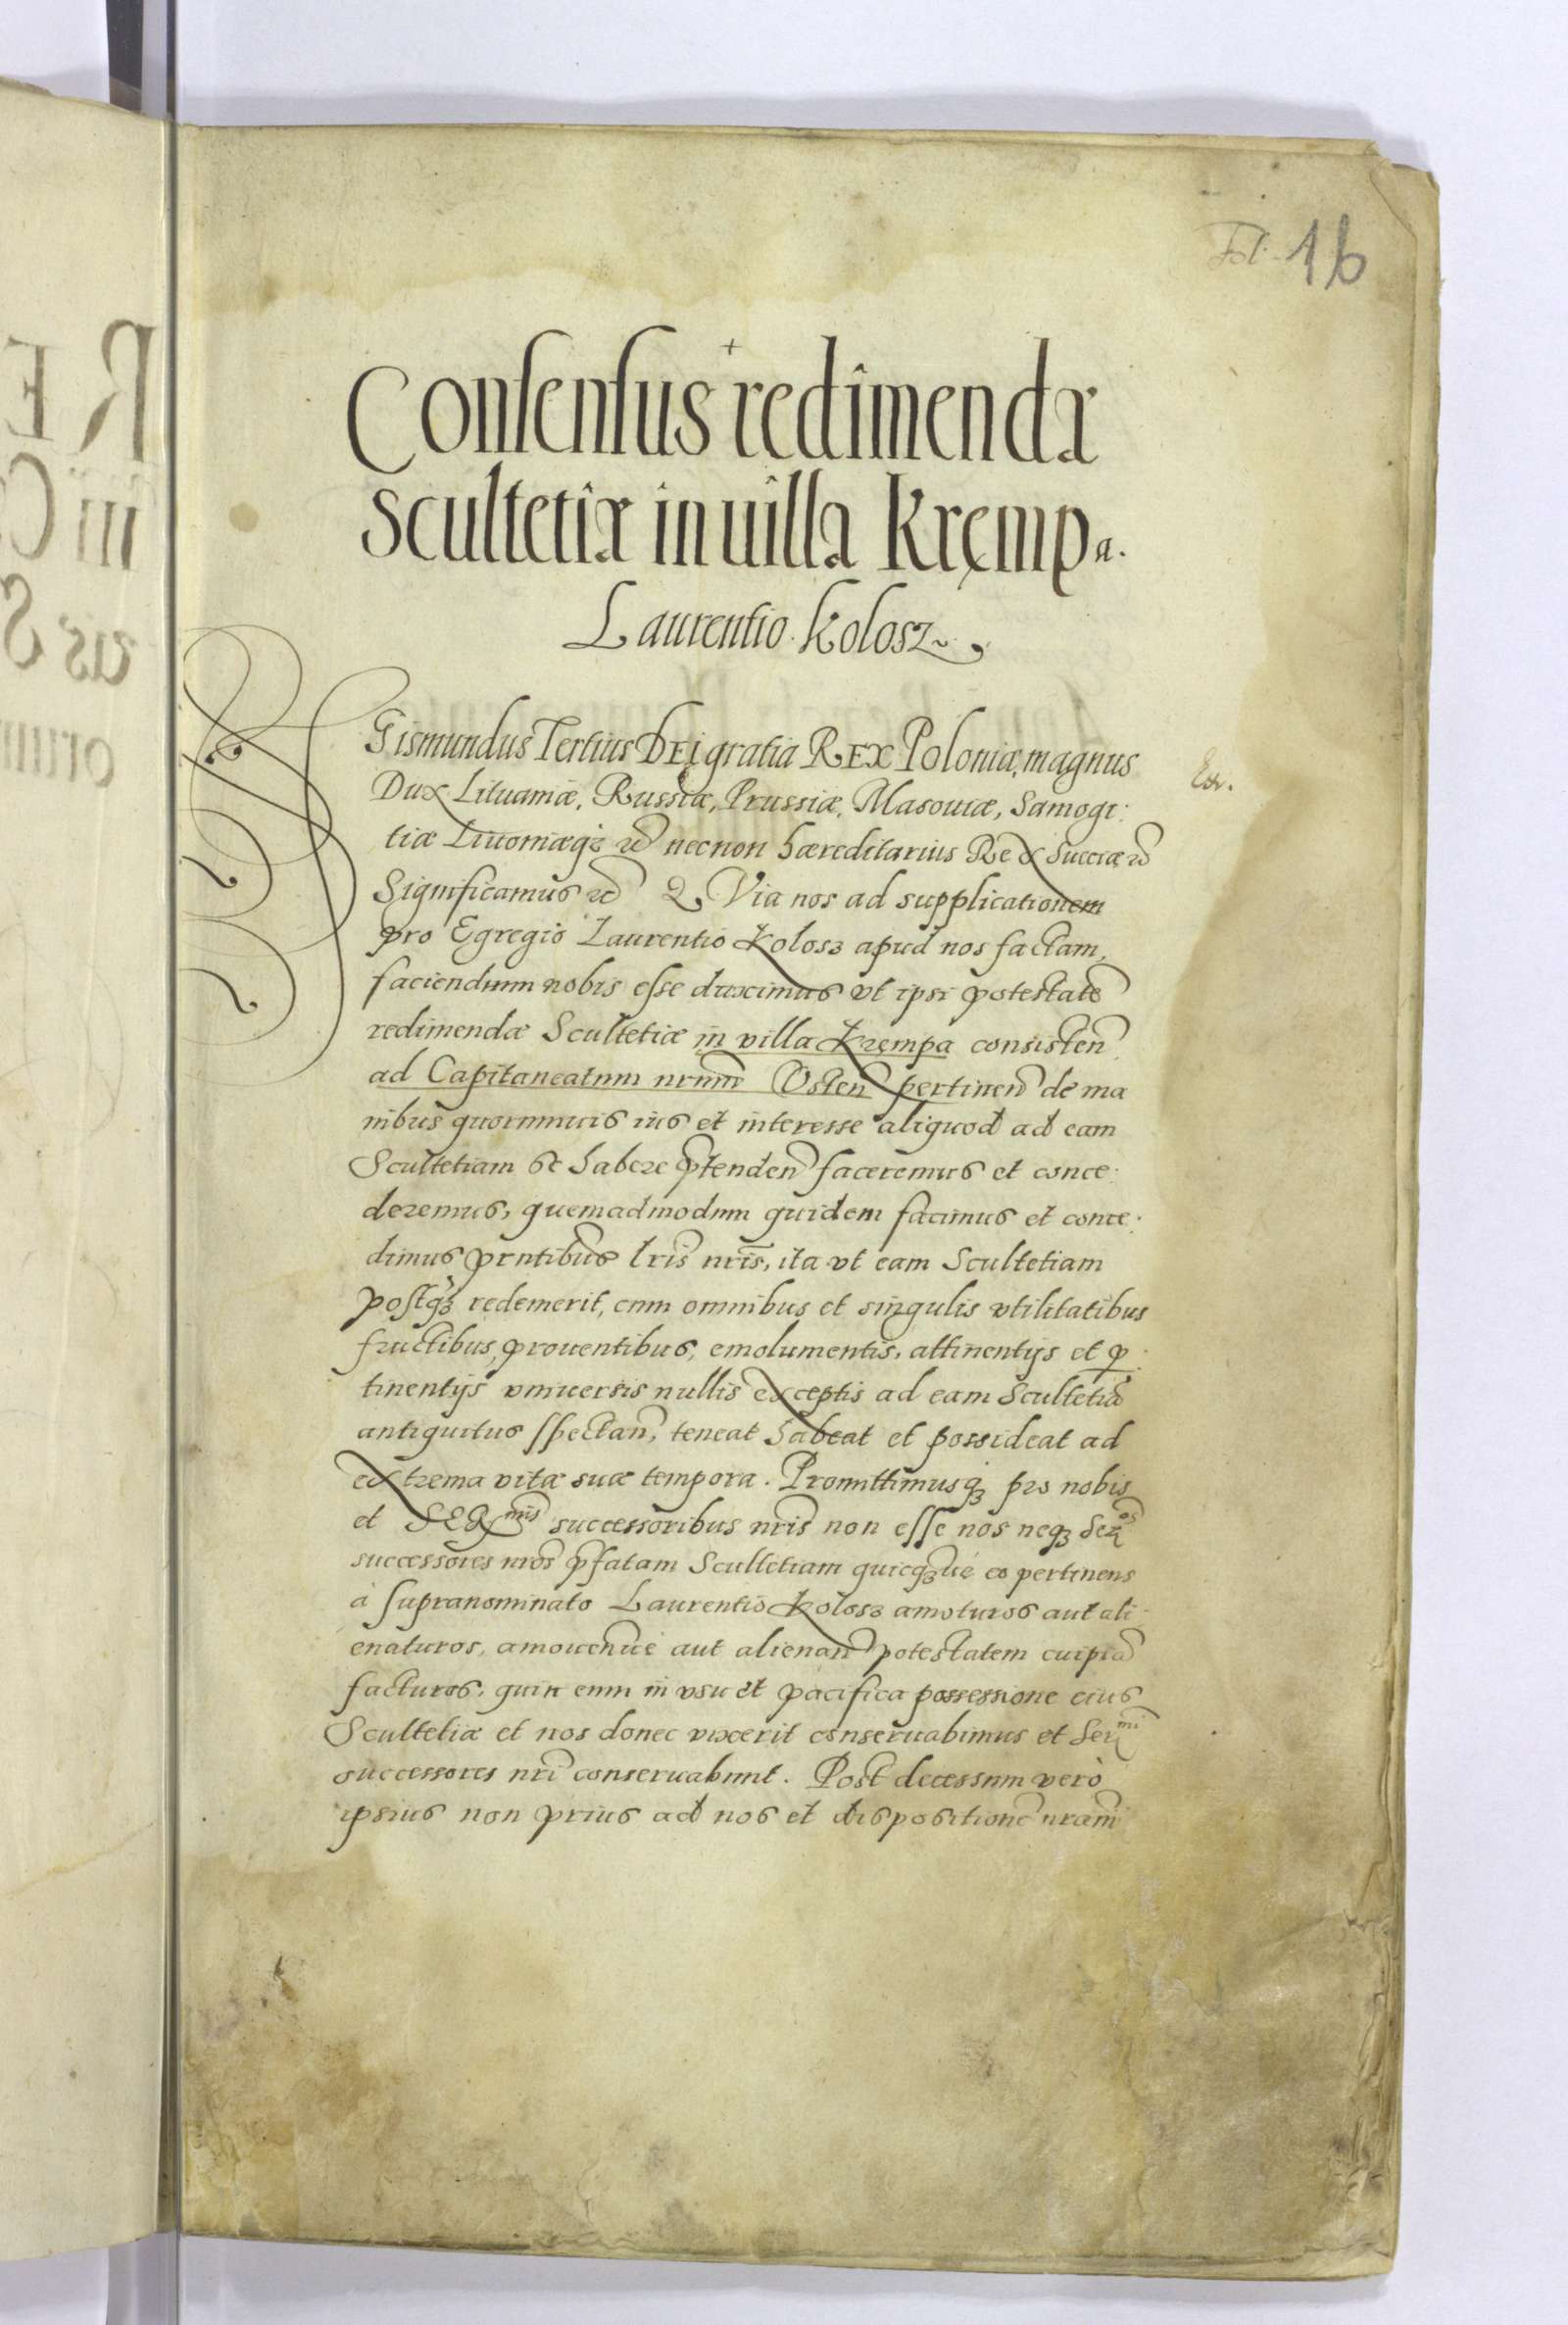 Fol. 16
Consensus redimendæ
scultetiæ in uilla Kręmpa.
Laurentio Kolosz
Sigismundus Tertius DEI gratia REX Poloniæ, magnus
Dux Lituaniæ, Russiæ, Prussiæ, Masouiæ, Samogi:
tiæ Liuoniæqꝫ ꝛc̃ necnon hæreditarius Rex Sueciæ ꝛc̃
Significamus ꝛc̃ Quia nos ad supplicationem
pro Egregio Laurentio Kolosz apud nos factam,
faciendum nobis esse duximus vt ipsi potestatẽ
redimendæ Scultetiæ in villa Krempa consisteñ
ad Capitaneatum nrum̃ Osteñ pertineñ de ma
nibus quorumuis ius et interesse aliquod ad eam
Scultetiam se habere p̃tendeñ faceremus et conce:
deremus, quemadmodum quidem facimus et conce:
dimus pñtibus lris̃ nris̃, ita vt eam Scultetiam
postq̃ꝫ redemerit, cum omnibus et singulis vtilitatibus
fructibus, prouentibus, emolumentis, attinentijs et ꝑ:
tinentijs vniuersis nullis exceptis ad eam Scultetiã
antiquitus spectañ, teneat habeat et possideat ad
extrema vitæ suæ tempora. Promittimusqꝫ pro nobis
et SERmis successoribus nris̃ non esse nos neqꝫ Seros
successores nros̃ p̃fatam Scultetiam quicq̃ꝫue eo pertinens
à supranominato Laurentio Kolosz amoturos aut ali:
enaturos, amouendiué aut alienañ potestatem cuipiã
facturos, quin eum in vsu et pacifica possessione eius
Scultetiæ et nos donec vixerit conseruabimus et Sermi
successores nrĩ conseruabunt. Post decessum verò
ipsius non prius ad nos et dispositionẽ nram̃